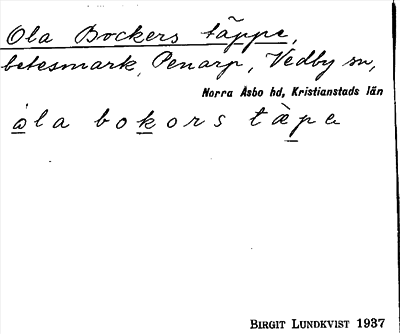 Ola Bockers täppe,
betesmark, Penarp, Vedby sn,
Norra Åsbo hd, Kristianstads län
ola bokors tàpa
BIRGIT LUNDKVIST 1937